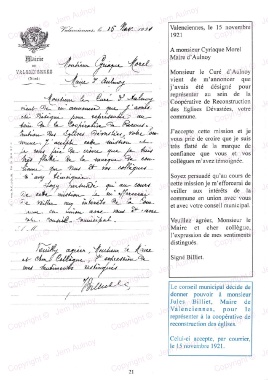 Mairie
DE
VALENCIENNES
(Nord)
Valenciennes, le 15 Nov. 1921
Monsieur Cyriaque Morel
Maire d'Aulnoy
Monsieur le Curé d'Aulnoy
vient de m'annoncer que j'avais
été désigné pour représenter au
sein de la Coopérative de Recons-
truction des Eglises Dévastées, votre
commune. J'accepte cette mission et je
vous prie de croire que je suis
très flatté de la marque de con-
fiance que vous et vos collègues
m'avez témoignée.
Soyez persuadé qu'au cours
de cette mission je m'efforcerai
de veiller aux intérêts de la com-
mune en union avec vous et avec
votre conseil municipal.
Veuillez agréer, Monsieur le Maire
et cher Collègue, l'expression de
mes sentiments distingués
JBillet
Valenciennes, le 15 novembre
1921
A monsieur Cyriaque Morel
Maire d'Aulnoy
Monsieur le Curé d'Aulnoy
vient de m'annoncer que
j'avais été désigné pour
représenter au sein de la
Coopérative de Reconstruction
des Eglises Dévastées, votre
commune.
J'accepte cette mission et je
vous prie de croire que je suis
très flatté de la marque de
confiance que vous et vos
collègues m'avez témoignée.
Soyez persuadé qu'au cours de
cette mission je m'efforcerai de
veiller aux intérêts de la
commune en union avec vous et
avec votre conseil municipal.
Veuillez agréer, Monsieur le
Maire et cher collègue,
l'expression de mes sentiments
distingués.
Signé Billiet.
Le conseil municipal décide de
donner pouvoir à monsieur
Jules Billiet, Maire de
Valenciennes, pour le
représenter à la coopérative de
reconstruction des églises.
Celui-ci accepte, par courrier,
le 15 novembre 1921.
21